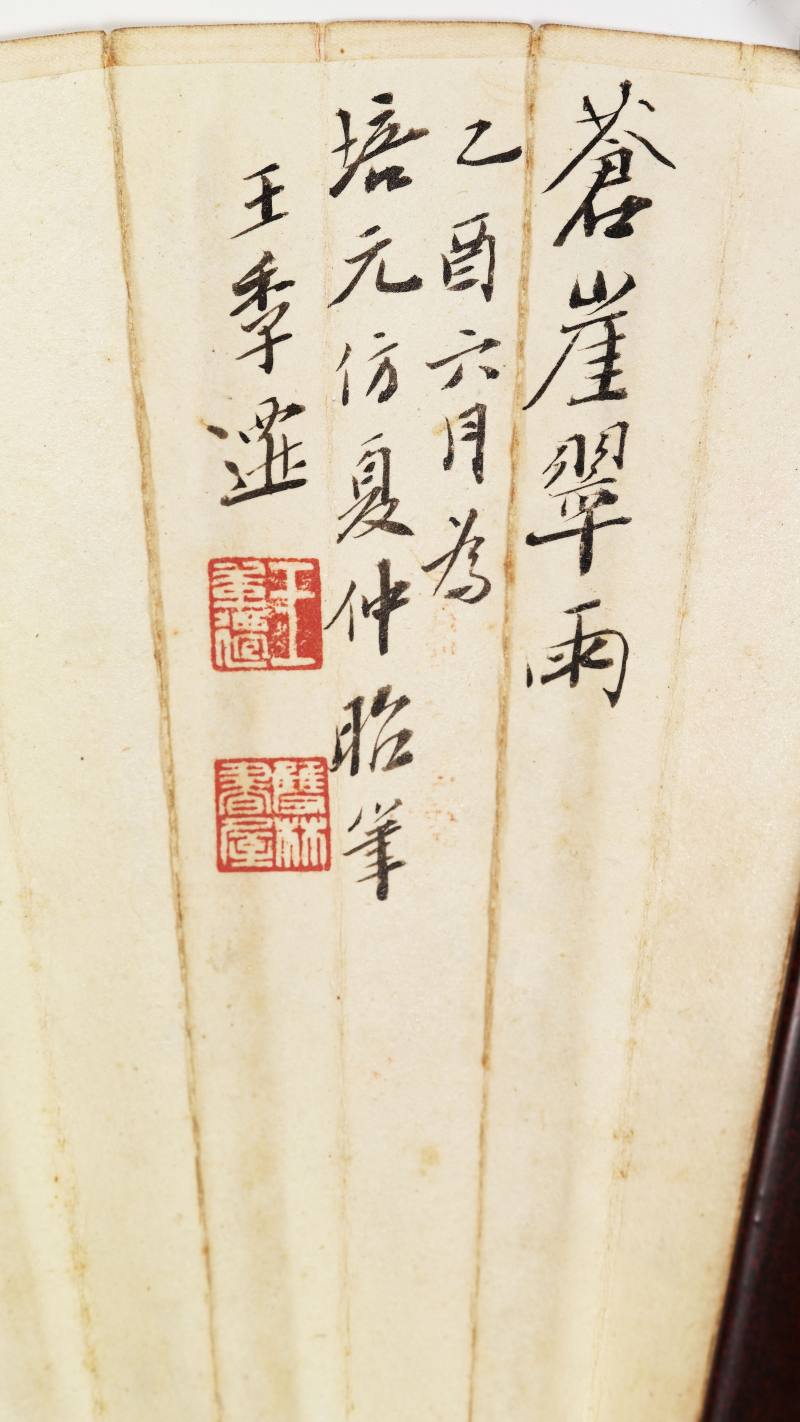 蒼崖翠雨
乙酉六月為
培元仿夏仲昭筆
王季遷
王季遷
雙林書屋